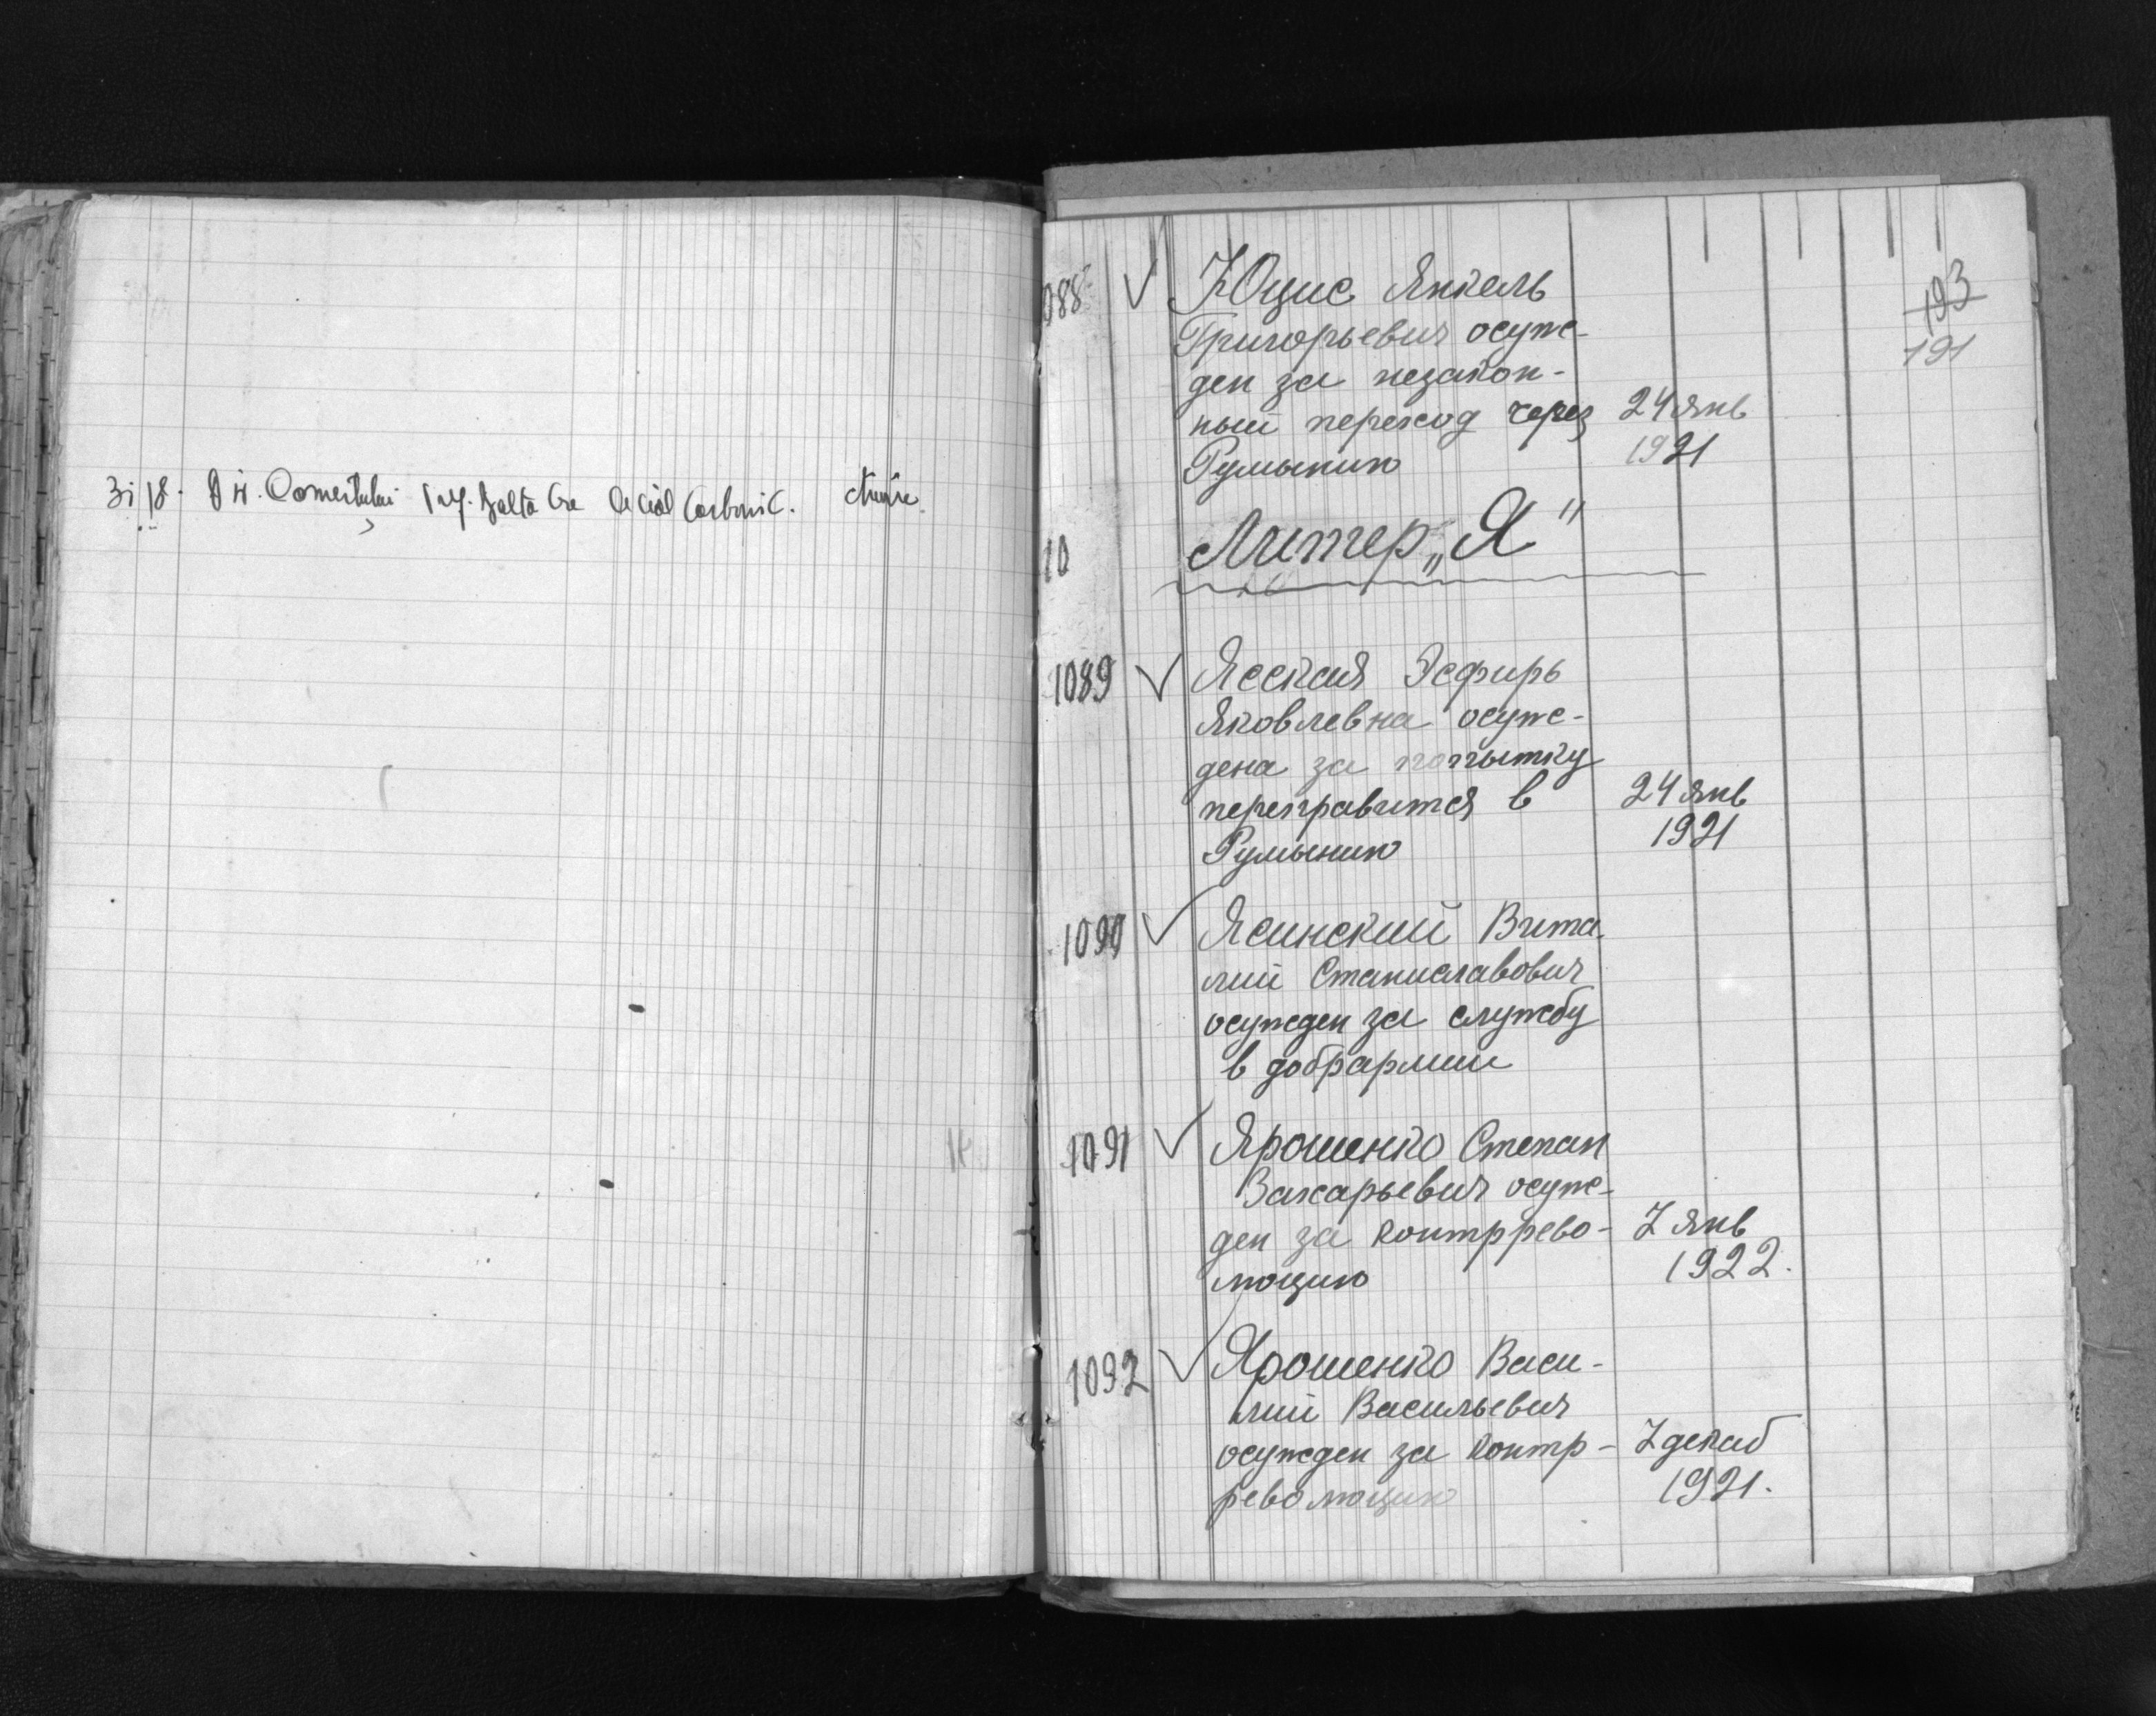 31/8. Dir. Comertului Inj. Balta Cre Acid Carbonic.
088 Юцис Янкель
193
Григорьевич осуж-
191
ден за незакон-
ный переход через 24 янв
Румынию 1921
10 Литер „Я"
1089 Ясская Эсфирь
Яковлевна осуж-
дена за попытку
переправится в 24 янв
Румынию 1921
1090 Ясинский Вита-
лий Станиславович
осужден за службу
в добрармии
1091 Ярошенко Степан
Захарьевич осуж-
ден за контррево- 7 янв
люцию 1922.
1092 Ярошенко Васи-
лий Васильевич
осужден за контр- 7 декаб
революцию 1921.